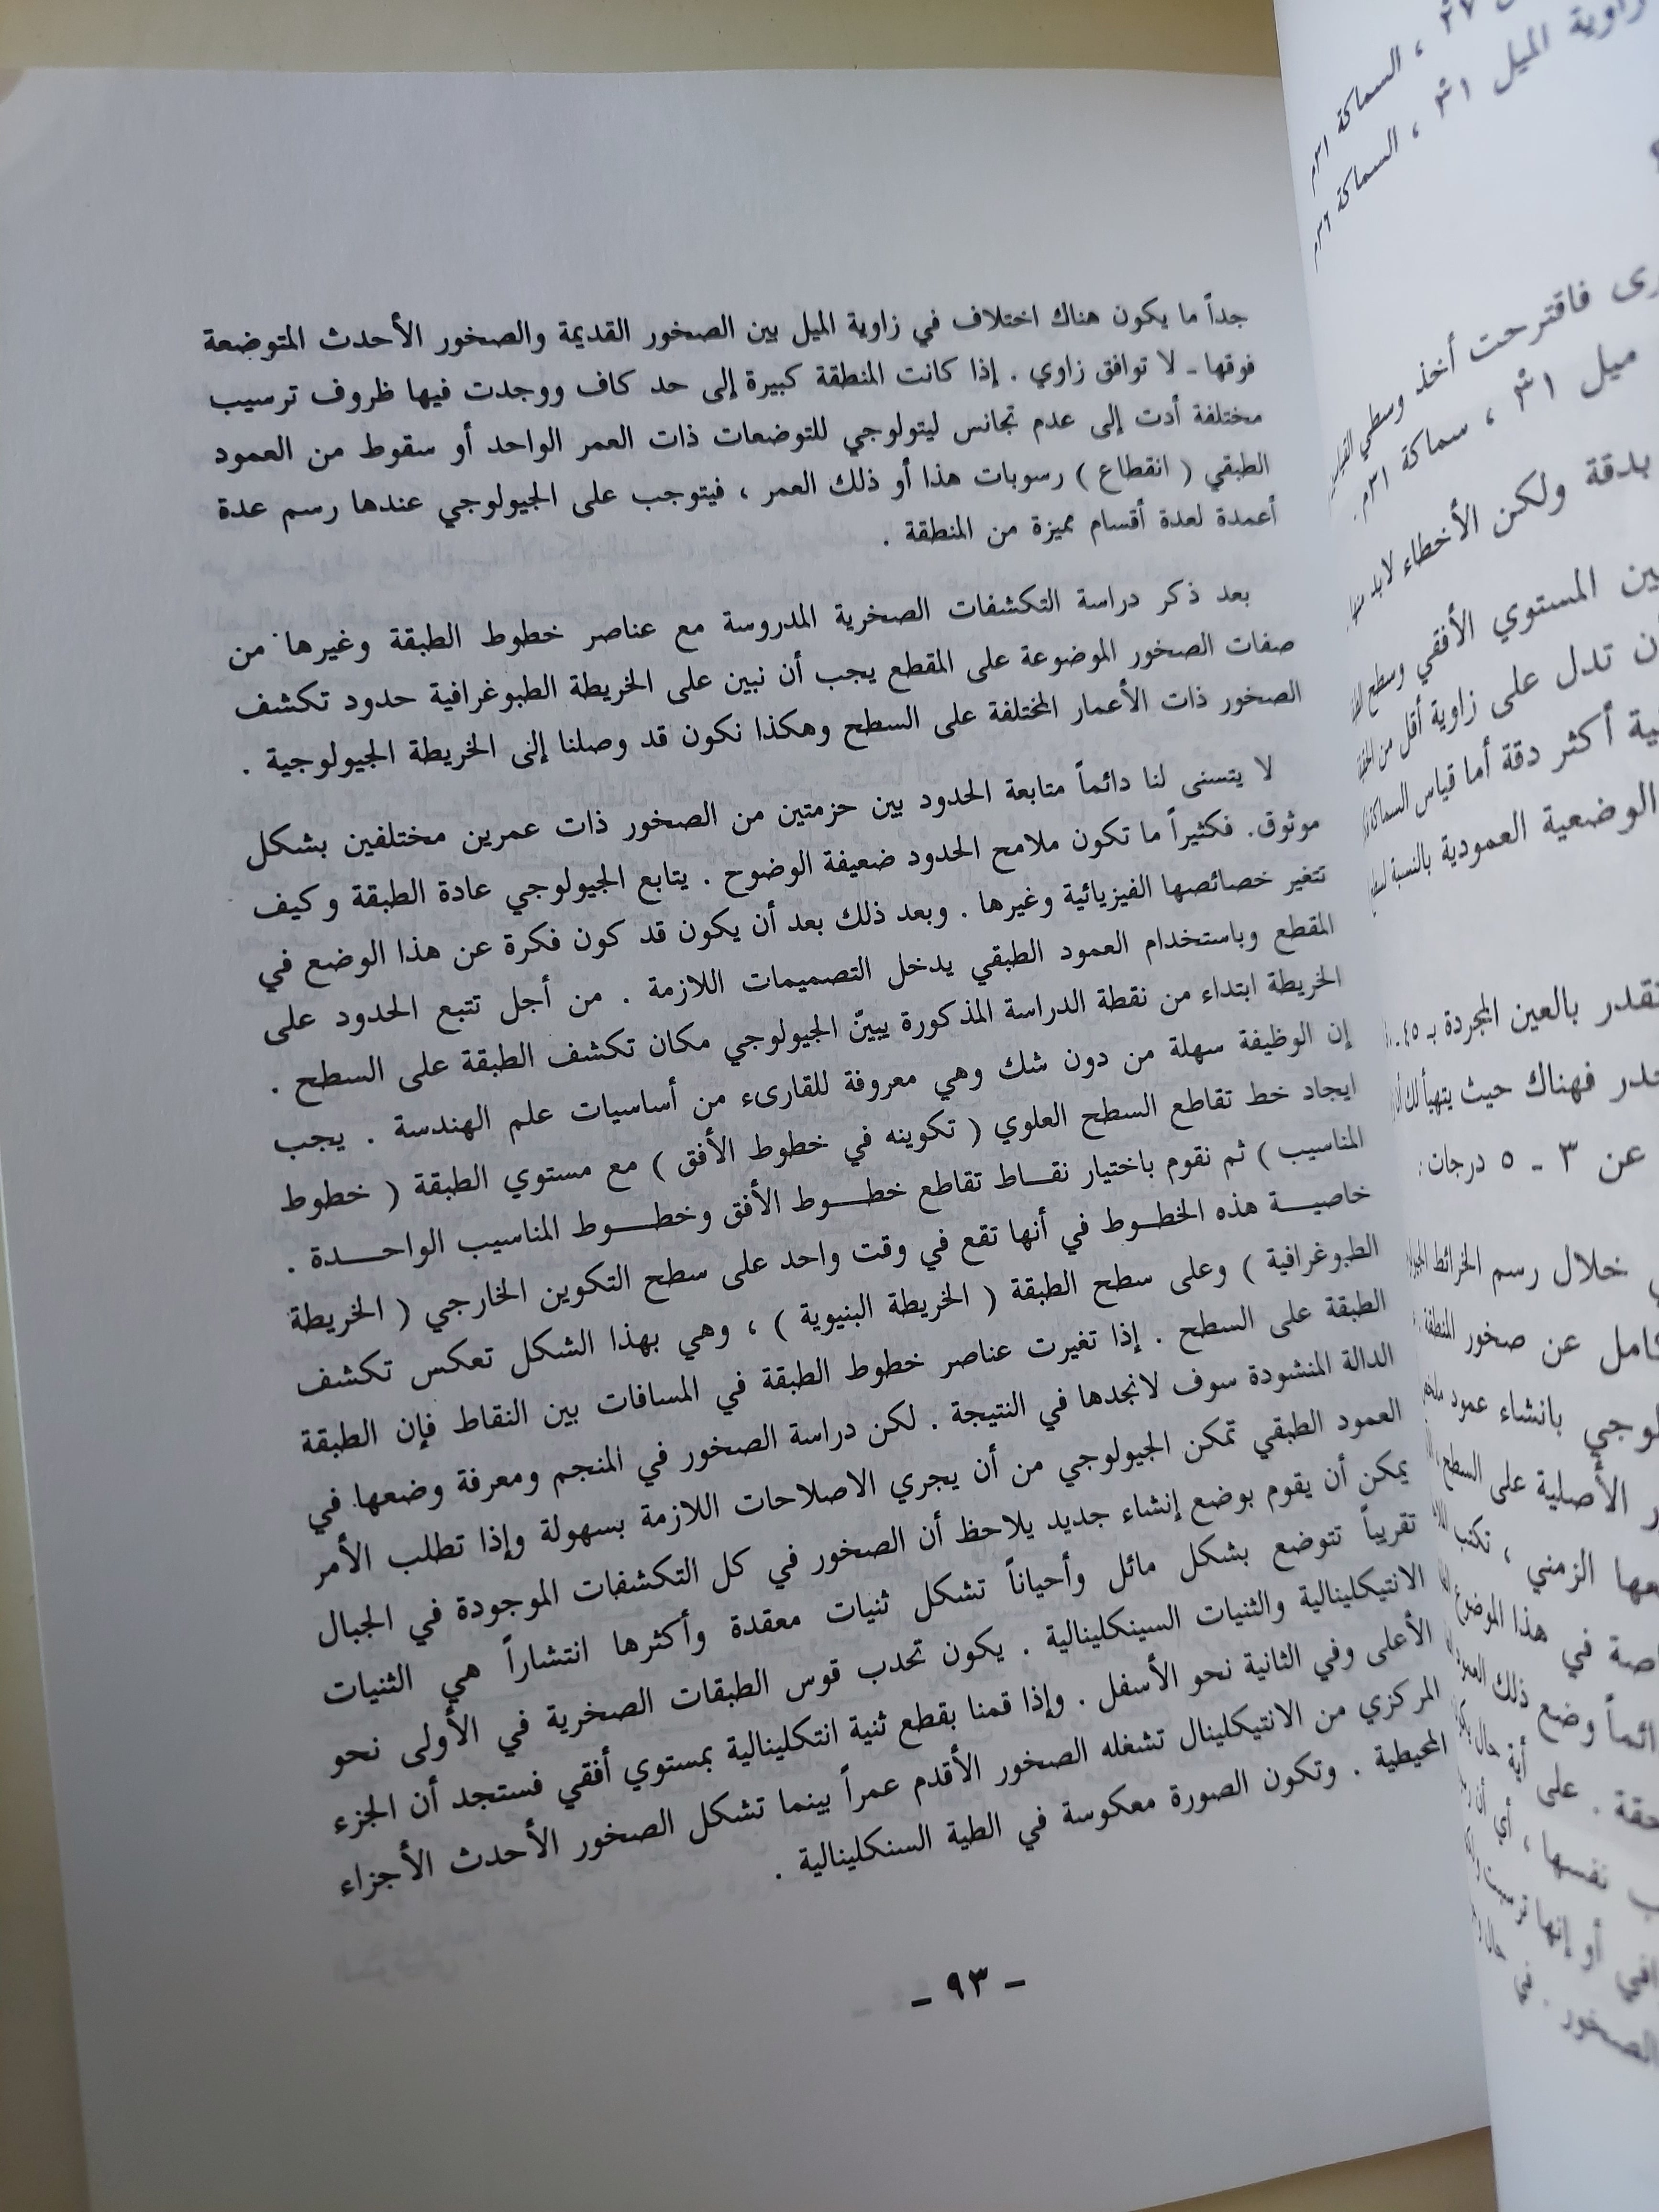 جداً ما يكون هناك اختلاف في زاوية الميل بين الصخور القديمة والصخور الأحدث المتوضعة
فوقها ـ لا توافق زاوي . إذا كانت المنطقة كبيرة إلى حد كاف ووجدت فيها ظروف ترسيب
مختلفة أدت إلى عدم تجانس ليتولوجي للتوضعات ذات العمر الواحد أو سقوط من العمود
الطبقي ( انقطاع ) رسوبات هذا أو ذلك العمر ، فيتوجب على الجيولوجي عندها رسم عدة
أعمدة لعدة أقسام مميزة من المنطقة .
بعد ذكر دراسة التكشفات الصخرية المدروسة مع عناصر خطوط الطبقة وغيرها من
صفات الصخور الموضوعة على المقطع يجب أن نبين على الخريطة الطبوغرافية حدود تكشف
الصخور ذات الأعمار المختلفة على السطح وهكذا نكون قد وصلنا إلى الخريطة الجيولوجية .
لا يتسنى لنا دائماً متابعة الحدود بين حزمتين من الصخور ذات عمرين مختلفين بشكل
موثوق. فكثيراً ما تكون ملامح الحدود ضعيفة الوضوح . يتابع الجيولوجي عادة الطبقة وكيف
تتغير خصائصها الفيزيائية وغيرها . وبعد ذلك بعد أن يكون قد كون فكرة عن هذا الوضع في
المقطع وباستخدام العمود الطبقي يدخل التصميمات اللازمة . من أجل تتبع الحدود على
الخريطة ابتداء من نقطة الدراسة المذكورة يبينّ الجيولوجي مكان تكشف الطبقة على السطح .
إن الوظيفة سهلة من دون شك وهي معروفة للقارىء من أساسيات علم الهندسة . يجب
ايجاد خط تقاطع السطح العلوي ( تكوينه في خطوط الأفق ) مع مستوي الطبقة ( خطوط
المناسيب ) ثم نقوم باختيار نقـاط تقاطع خطـوط الأفق وخطـوط المناسيب الواحـدة .
خاصيـة هذه الخطـوط في أنها تقع في وقت واحد على سطح التكوين الخارجي ( الخريطة
الطبوغرافية ) وعلى سطح الطبقة ( الخريطة البنيوية ) ، وهي بهذا الشكل تعكس تكشف
الطبقة على السطح . إذا تغيرت عناصر خطوط الطبقة في المسافات بين النقاط فإن الطبقة
الدالة المنشودة سوف لانجدها في النتيجة . لكن دراسة الصخور في المنجم ومعرفة وضعها في
العمود الطبقي تمكن الجيولوجي من أن يجري الاصلاحات اللازمة بسهولة وإذا تطلب الأمر
يمكن أن يقوم بوضع إنشاء جديد يلاحظ أن الصخور في كل التكشفات الموجودة في الجبال
تقريباً تتوضع بشكل مائل وأحياناً تشكل ثنيات معقدة وأكثرها انتشاراً هي الثنيات
الانتيكلينالية والثنيات السينكلينالية . يكون تحدب قوس الطبقات الصخرية في الأولى نحو
الأعلى وفي الثانية نحو الأسفل . وإذا قمنا بقطع ثنية انتكلينالية بمستوي أفقي فستجد أن الجزء
المركزي من الانتيكلينال تشغله الصخور الأقدم عمراً بينما تشكل الصخور الأحدث الأجزاء
المحيطية . وتكون الصورة معكوسة في الطية السنكلينالية .
ـ ٩٣ ـ
زاوية الميل ٣١ ، السماكة ٣٦م
فاقترحت أخذ وسطي
ميل ٣١ ، سماكة ٣١م .
بدقة ولكن الأخطاء لابد منها
المستوي الأفقي وسطح
تدل على زاوية أقل من
أكثر دقة أما قياس السماكة
الوضعية العمودية بالنسبة
تقدر بالعين المجردة بـ ٤٥ـ
فهناك حيث يتهيأ لك
عن ٣ ـ ٥ درجات
خلال رسم الخرائط
عن صخور المنطقة
بانشاء عمود
الأصلية على السطح
الزمني ، نكتب
في هذا الموضوع
وضع ذلك العمود
على أية حال
نفسها ، أي أن
أو إنها ترسبت